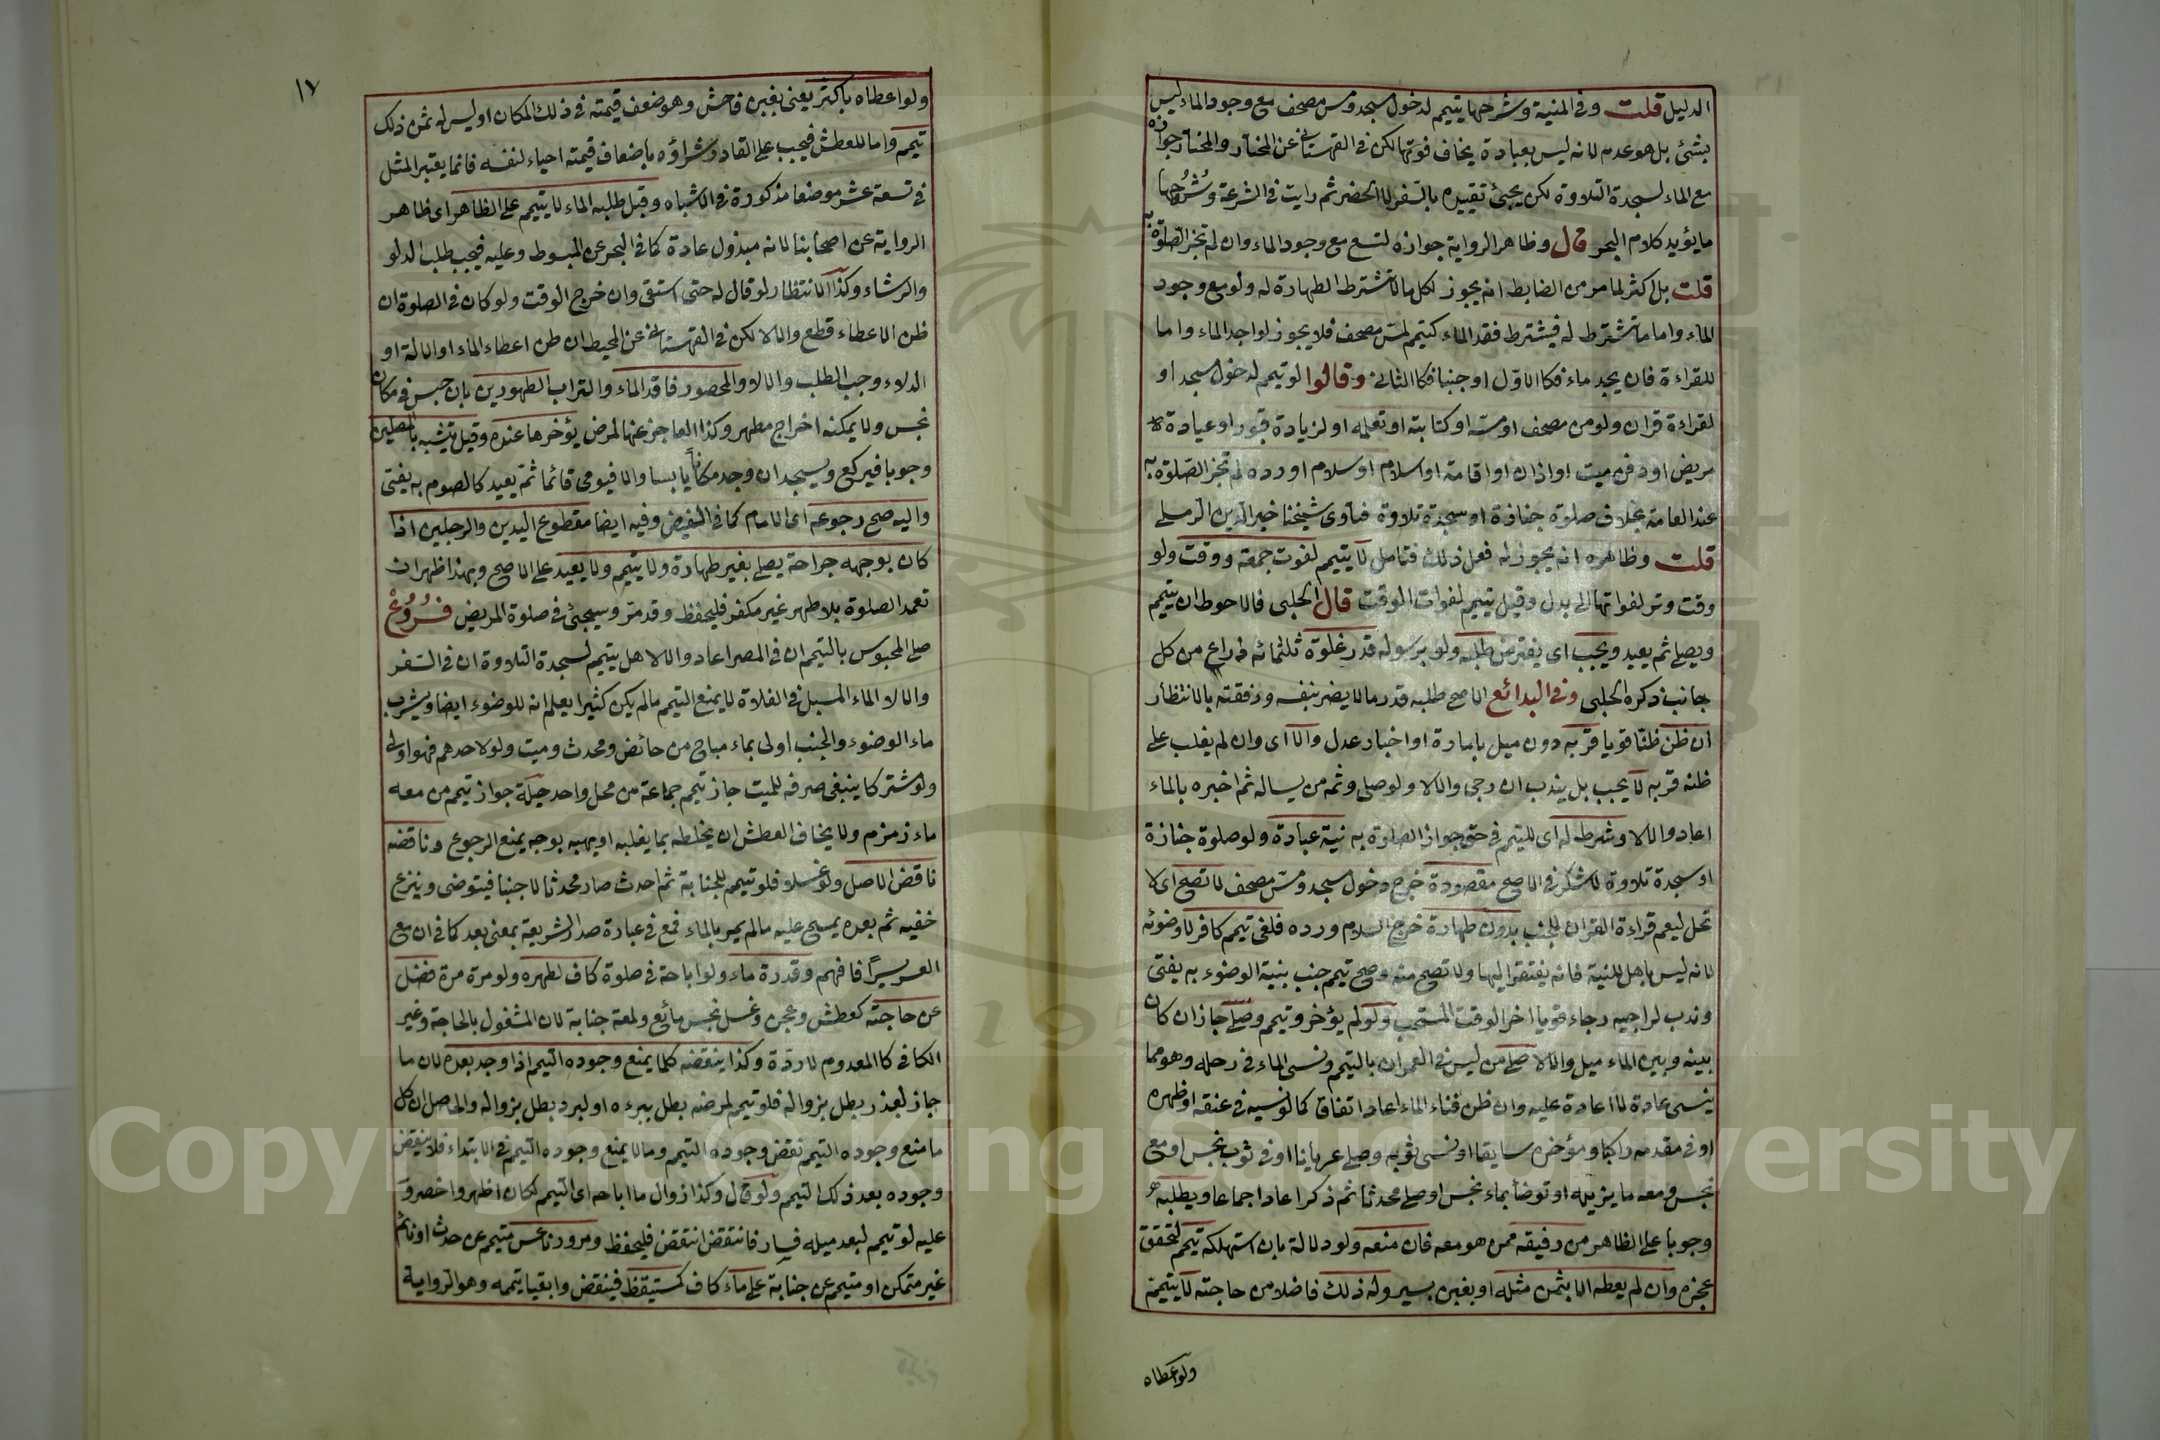 الدليل قلت وفي المنية وشرحها يتيمم لدخول مسجد ومس مصحف مع وجود الماء ليس
بشئ بل هو عدم لانه ليس بعبادة يخاف فوتها لكن في القهستاني عن المختار والمختار جوازه
مع الماء لسجدة التلاوة لكن يجئ تقييده بالسفر لا الحضر ثم رايت في الشرعة وشروحها
ما يؤيد كلام البحر قال وظاهر الرواية جوازه لتسع مع وجود الماء وان لم تجز الصلوة به
قلت بل لكثر لما مر من الضابط انه يجوز لكل ما لا تشترط الطهارة له ولو مع وجود
الماء واما ما تشترط له فيشترط فقد الماء كتيمم لمس مصحف فلا يجوز لواجد الماء واما
للقراءة فان يجد ماء فكا الاول او جنبا فكا الثاني وقالوا لو تيمم لدخول مسجد او
لقراءة قران ولو من مصحف او مسه او كتابته او تعليمه او لزيارة قبور او عيادة
مريض او دفن ميت او اذان او اقامة او اسلام او سلام او رده لم تجز الصلوة به
عند العامة بخلاف صلوة جنازة او سجدة تلاوة فتاوى شيخنا خير الدين الرملي
قلت وظاهره انه يجوز له فعل ذلك فتامل لا يتيمم لفوت جمعة ووقت ولو
وقت وتر لفواتها الى بدل وقيل يتيمم لفوات الوقت قال الحلبي فالاحوط ان يتيمم
ويصلي ثم يعيد ويجب اى يفترض طلبه ولو برسوله قدر غلوة ثلثمائة ذراع من كل
جانب ذكره الحلبي وفي البدائع الاصح طلبه قدر ما لا يضر بنفسه ورفقته بالانتظار
ان ظن ظنا قويا قربه دون ميل بامارة او اخبار عدل والا اى وان لم يغلب على
ظنه قربه لا يجب بل يندب ان رجى والا لا ولو صلى وثم من يساله ثم اخبره بالماء
اعاد والا لا وشرط له اى للتيمم في حق جواز الصلوة به نية عبادة ولو صلوة جنازة
او سجدة تلاوة لا شكر في الاصح مقصودة خرج دخول مسجد ومس مصحف لا تصح اى لا
تحل ليعم قراءة القران للجنب بدون طهارة خرج السلام ورده فلغى تيمم كافر لا وضوئه
لانه ليس باهل للنية فانه يفتقر اليها ولا تصح منه وصح تيمم جنب بنية الوضوء به يفتى
وندب لراجيه رجاء قويا اخر الوقت المستحب ولو لم يؤخر وتيمم وصلى جاز ان كان
بينه وبين الماء ميل والا لا صلى من ليس في العمران بالتيمم ونسى الماء في رحله وهو مما
ينسى عادة لا اعادة عليه وان ظن فناء الماء اعاد اتفاقا كما لو نسيه في عنقه او ظهره
او في مقدمه راكبا ومؤخره سايقا او نسى ثوبه وصلى عريانا او في ثوب نجس او مع
نجس ومعه ما يزيله او توضأ بماء نجس او صلى محدثا ثم ذكر اعاد اجماعا ويطلبه
وجوبا على الظاهر من رفيقه ممن هو معه فان منعه ولو دلالة بان استهلكه تيمم لتحقق
عجزه وان لم يعطه الا بثمن مثله او بغبن يسير وله ذلك فاضلا من حاجته لا يتيمم
ولو اعطاه
١٧
ولو اعطاه باكثر يعنى بغبن فاحش وهو ضعف قيمته في ذلك المكان او ليس له ثمن ذلك
تيمم واما للعطش فيجب على القادر شراؤه باضعاف قيمته احياء لنفسه فانما يعتبر المثل
في تسعة عشر موضعا مذكورة في الاشباه وقبل طلبه الماء لا يتيمم على الظاهر اى ظاهر
الرواية عن اصحابنا لانه مبذول عادة كما في البحر عن المبسوط وعليه فيجب طلب الدلو
والرشاء وكذا الانتظار لو قال له حتى استقى وان خرج الوقت ولو كان في الصلوة ان
ظن الاعطاء قطع والا لا لكن في القهستاني عن المحيط ان ظن اعطاء الماء او الالة او
الدلاء وجب الطلب والا لا والمحصور فاقد الماء والتراب الطهورين بان حبس في مكان
نجس ولا يمكنه اخراج مطهر وكذا العاجز عنهما لمرض يؤخرها عنده وقيل يتشبه بالمصلين
وجوبا فيركع ويسجد ان وجد مكانا يابسا والا فيومى قائما ثم يعيد كالصوم به يفتى
واليه صح رجوعه اى الامام كما في الفيض وفيه ايضا مقطوع اليدين والرجلين اذا
كان بوجهه جراحة يصلي بغير طهارة ولا يتيمم ولا يعيد على الاصح وبهذا ظهر ان
تعمد الصلوة بلا طهر غير مكفر فليحفظ وقد مر وسيجئ في صلوة المريض فروع
صلى المحبوس بالتيمم ان في المصر اعاد والا لا هل يتيمم لسجدة التلاوة ان في السفر
والا لا الماء المسبل في الفلاة لا يمنع التيمم ما لم يكن كثيرا يعلم انه للوضوء ايضا ويشرب
ماء الوضوء والجنب اولى بماء مباح من حائض ومحدث وميت ولو لاحدهم فهو اولى
ولو مشتركا ينبغى صرفه للميت جاز تيمم جماعة من محل واحد حيلة جواز تيمم من معه
ماء زمزم ولا يخاف العطش ان يخلطه بما يغلبه او يهبه بوجه يمنع الرجوع وناقضه
ناقض الاصل ولو غسلا فلو تيمم للجنابة ثم احدث صار محدثا لا جنبا فيتوضى وينزع
خفيه ثم بعده يمسح عليه ما لم يمر بالماء فمع في عبارة صدر الشريعة بمعنى بعد كما في ان مع
العسر يسرا فافهم وقدرة ماء ولو اباحة في صلوة كاف لطهره ولو مرة مرة فضل
عن حاجته كعطش وعجن وغسل نجس مانع ولمعة جنابة لان المشغول بالحاجة وغير
الكافي كا المعدوم لا ردة وكذا ينقضه كلما يمنع وجوده التيمم اذا وجد بعده لان ما
جاز لعذر بطل بزواله فلو تيمم لمرضه بطل ببرءه او لبرد بطل بزواله والحاصل ان كل
ما منع وجوده التيمم نقض وجوده التيمم وما لا يمنع وجوده التيمم في الابتداء فلا ينقض
وجوده بعد ذلك التيمم ولو قال وكذا زوال ما اباحه اى التيمم لكان اظهر واخصر و
عليه لو تيمم لبعد ميله فسار فانتقض انتقض فليحفظ ومرور ناعس متيمم عن حدث او نائم
غير متمكن او متيمم عن جنابة على ماء كاف كمستيقظ فينقض وابقيا تيممه وهو الرواية
Copyright © King Saud University